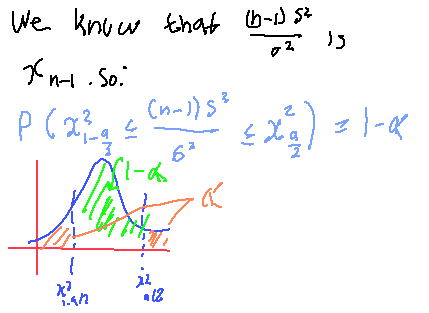 We know that (n-1)S²/σ² is
x n-1. So:
P(x²_{1-a/2} ≤ (n-1)S²/σ² ≤ x²_{a/2}) = 1-α
1-α
α
x²_{1-a/2} x²_{a/2}